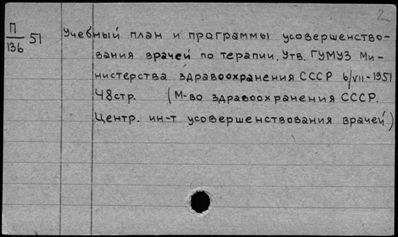 2
П/136 51 Учебный план и программы усовершенство-
вания врачей по терапии. Утв. ГУМУЗ Ми-
нистерства здравоохранения СССР 6/VII-1951
48стр. (М-во здравоохранения СССР.
Центр. ин-т усовершенствования врачей.)